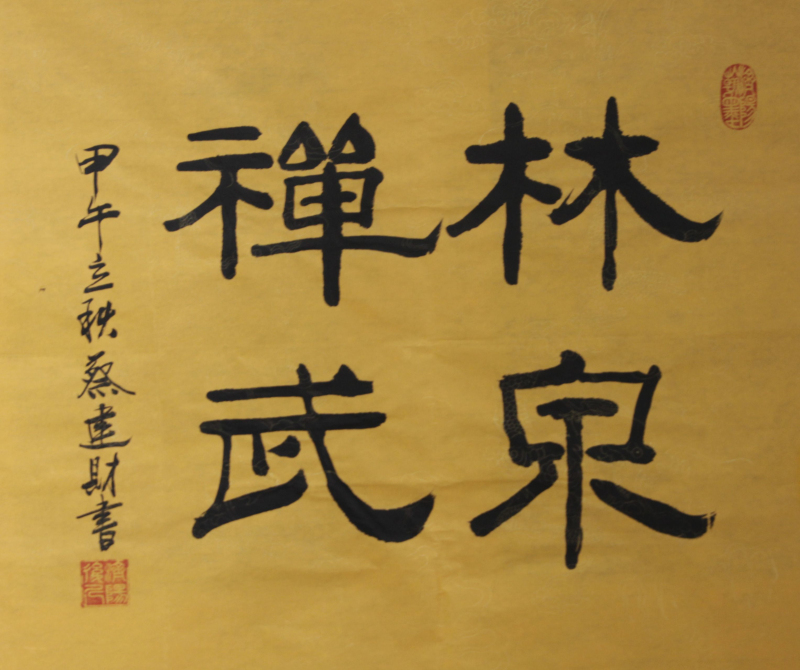 林泉
禪武
甲午立秋蔡建財書